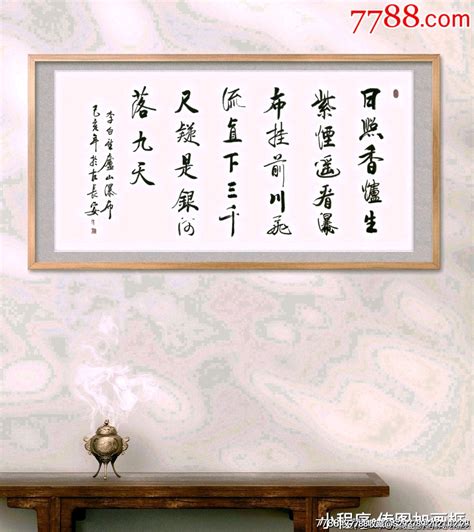 7788.com
日照香爐生
紫煙遥看瀑
布挂前川飛
流直下三千
尺疑是銀河
落九天
李白望廬山瀑布
己亥年於古長安
小程序-传图加画框